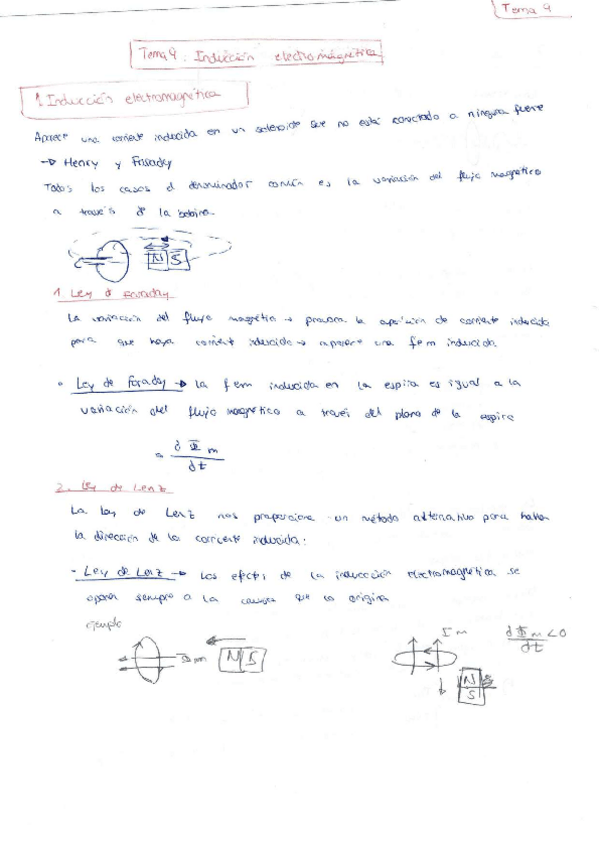 Tema 9
Tema 9: Inducción electromagnética
1. Inducción electromagnética
Aparece una corriente inducida en un solenoide que no está conectado a ninguna fuente
→ Henry y Faraday
Todos los casos el denominador común es la variación del flujo magnético
a través de la bobina.
N S
1. Ley de Faraday
La variación del flujo magnético → provoca la aparición de corriente inducida
para que haya corriente inducida → aparece una fem inducida.
Ley de Faraday → la fem inducida en la espira es igual a la
variación del flujo magnético a través del plano de la espira
= d Φ m
dt
2. Ley de Lenz
La ley de Lenz nos proporciona un método alternativo para hallar
la dirección de la corriente inducida:
- Ley de Lenz → Los efectos de la inducción electromagnética se
oponen siempre a la causa que lo origina
ejemplo
Φ m N S
Φ m d Φ m < 0
dt
N
S